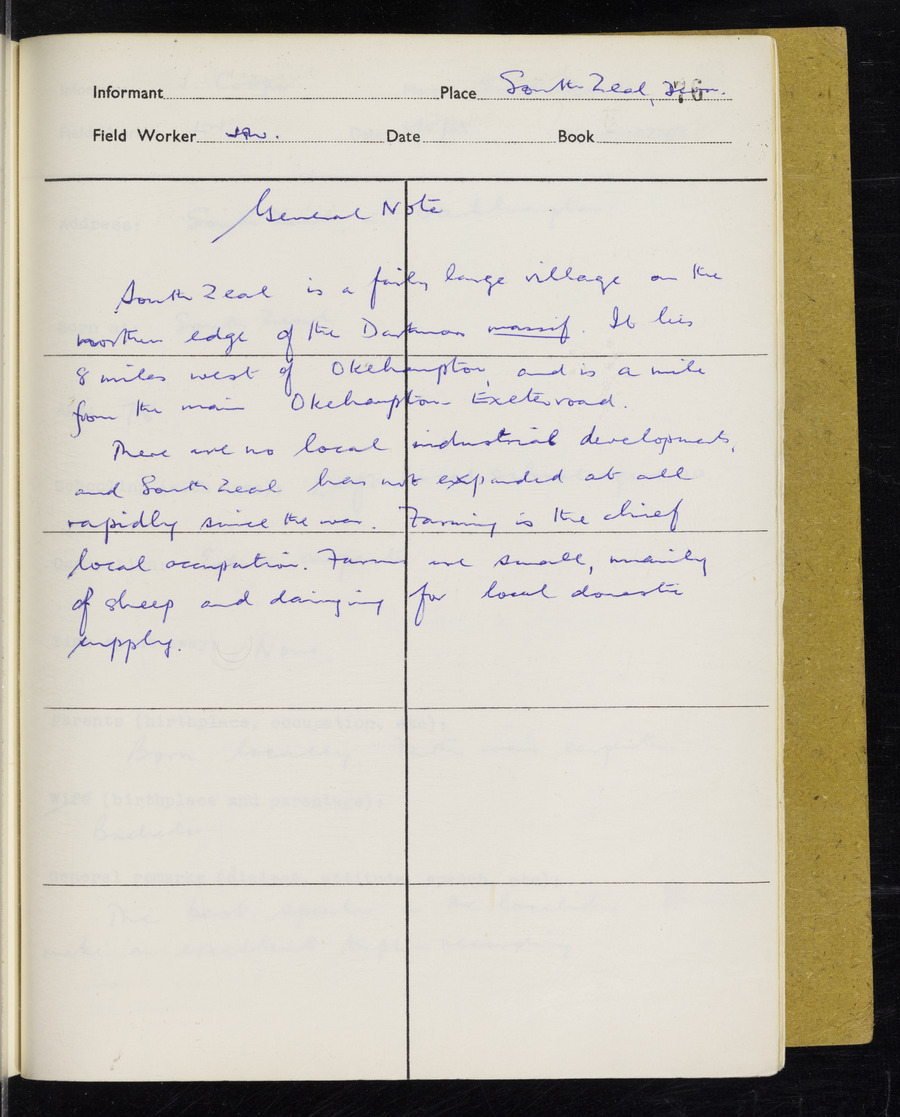 Informant Place South Zeal, Devon. 76
Field Worker Date Book
General Note
South Zeal is a fairly large village on the
northern edge of the Dartmoor massif. It lies
8 miles west of Okehampton, and is a mile
from the main Okehampton - Exeter road.
There are no local industrial developments,
and South Zeal has not expanded at all
rapidly since the war. Farming is the chief
local occupation. Farms are small, mainly
of sheep and dairying for local domestic
supply.